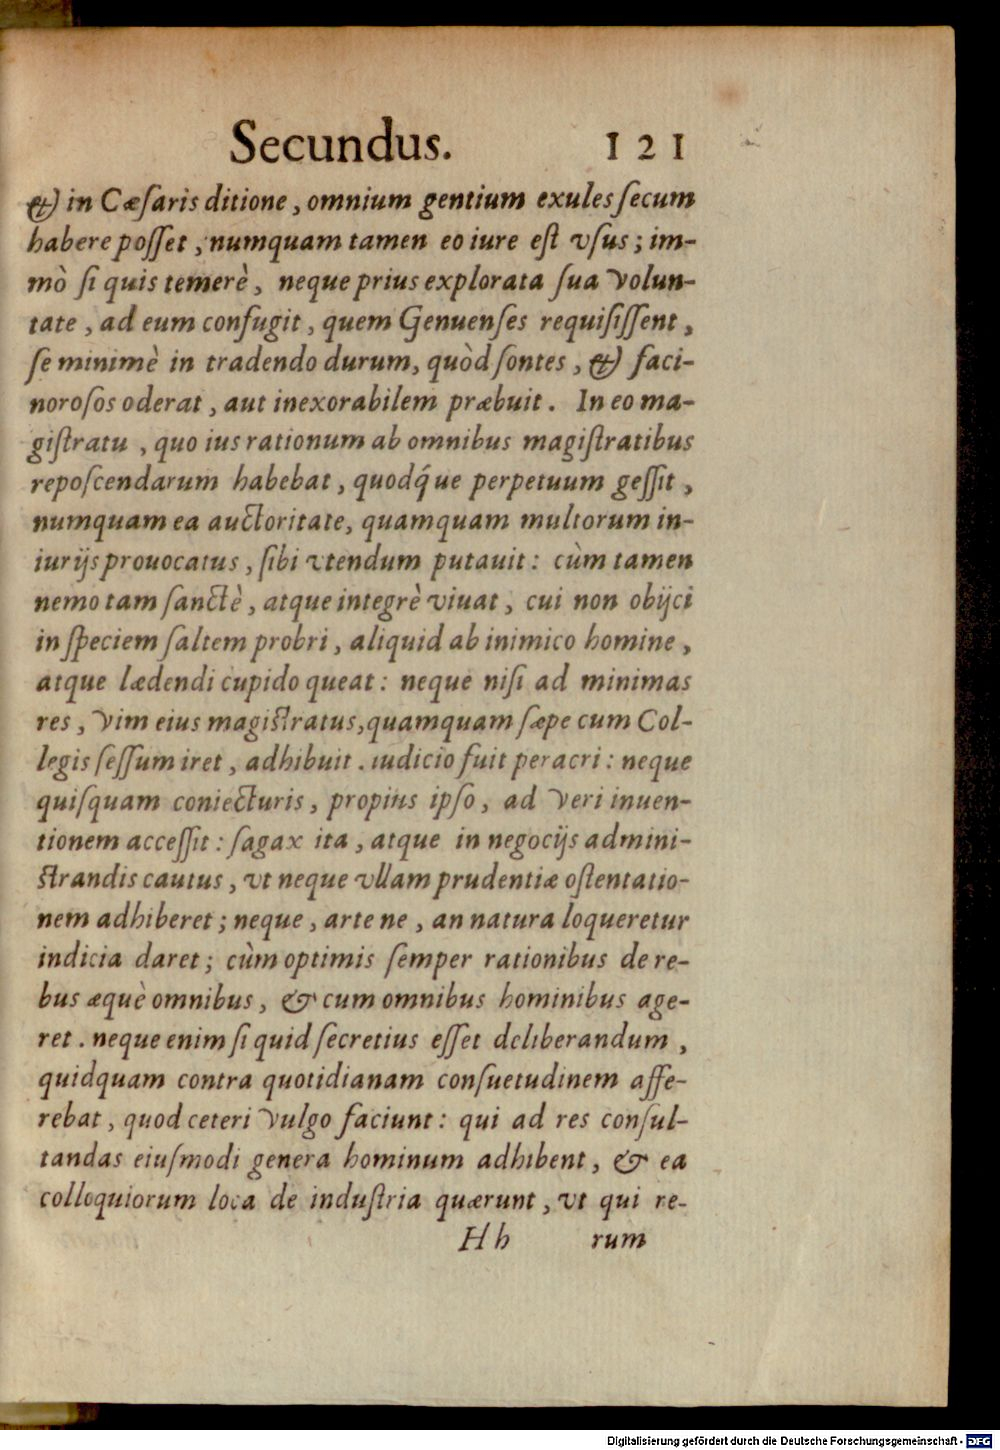 Secundus. 121
& in Cæſaris ditione, omnium gentium exules ſecum
habere poſſet, numquam tamen eo iure eſt vſus; im-
mò ſi quis temerè, neque prius explorata ſua volun-
tate, ad eum confugit, quem Genuenſes requiſiſſent,
ſe minimè in tradendo durum, quòd ſontes, & faci-
noroſos oderat, aut inexorabilem præbuit. In eo ma-
giſtratu, quo ius rationum ab omnibus magiſtratibus
repoſcendarum habebat, quodq́ue perpetuum geſſit,
numquam ea auctoritate, quamquam multorum in-
iurijs prouocatus, ſibi vtendum putauit: cùm tamen
nemo tam ſanctè, atque integrè viuat, cui non obijci
in ſpeciem ſaltem probri, aliquid ab inimico homine,
atque lædendi cupido queat: neque niſi ad minimas
res, vim eius magiſtratus, quamquam ſæpe cum Col-
legis ſeſſum iret, adhibuit. iudicio fuit peracri: neque
quiſquam coniecturis, propius ipſo, ad veri inuen-
tionem acceſſit: ſagax ita, atque in negocijs admini-
ſtrandis cautus, vt neque vllam prudentiæ oſtentatio-
nem adhiberet; neque, arte ne, an natura loqueretur
indicia daret; cùm optimis ſemper rationibus de re-
bus æquè omnibus, & cum omnibus hominibus age-
ret. neque enim ſi quid ſecretius eſſet deliberandum,
quidquam contra quotidianam conſuetudinem affe-
rebat, quod ceteri vulgo faciunt: qui ad res conſul-
tandas eiuſmodi genera hominum adhibent, & ea
colloquiorum loca de induſtria quærunt, vt qui re-
Hh rum
Digitalisierung gefördert durch die Deutsche Forschungsgemeinschaft - DFG